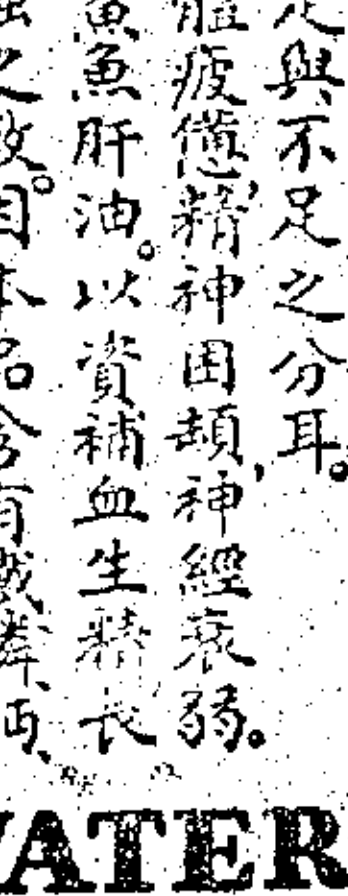 足與不足之分耳。
體疲憊,精神困頓,神經衰弱。
魚肝油。以資補血生精長
之故。因本品含有鐵、燐、鈣、
ATER